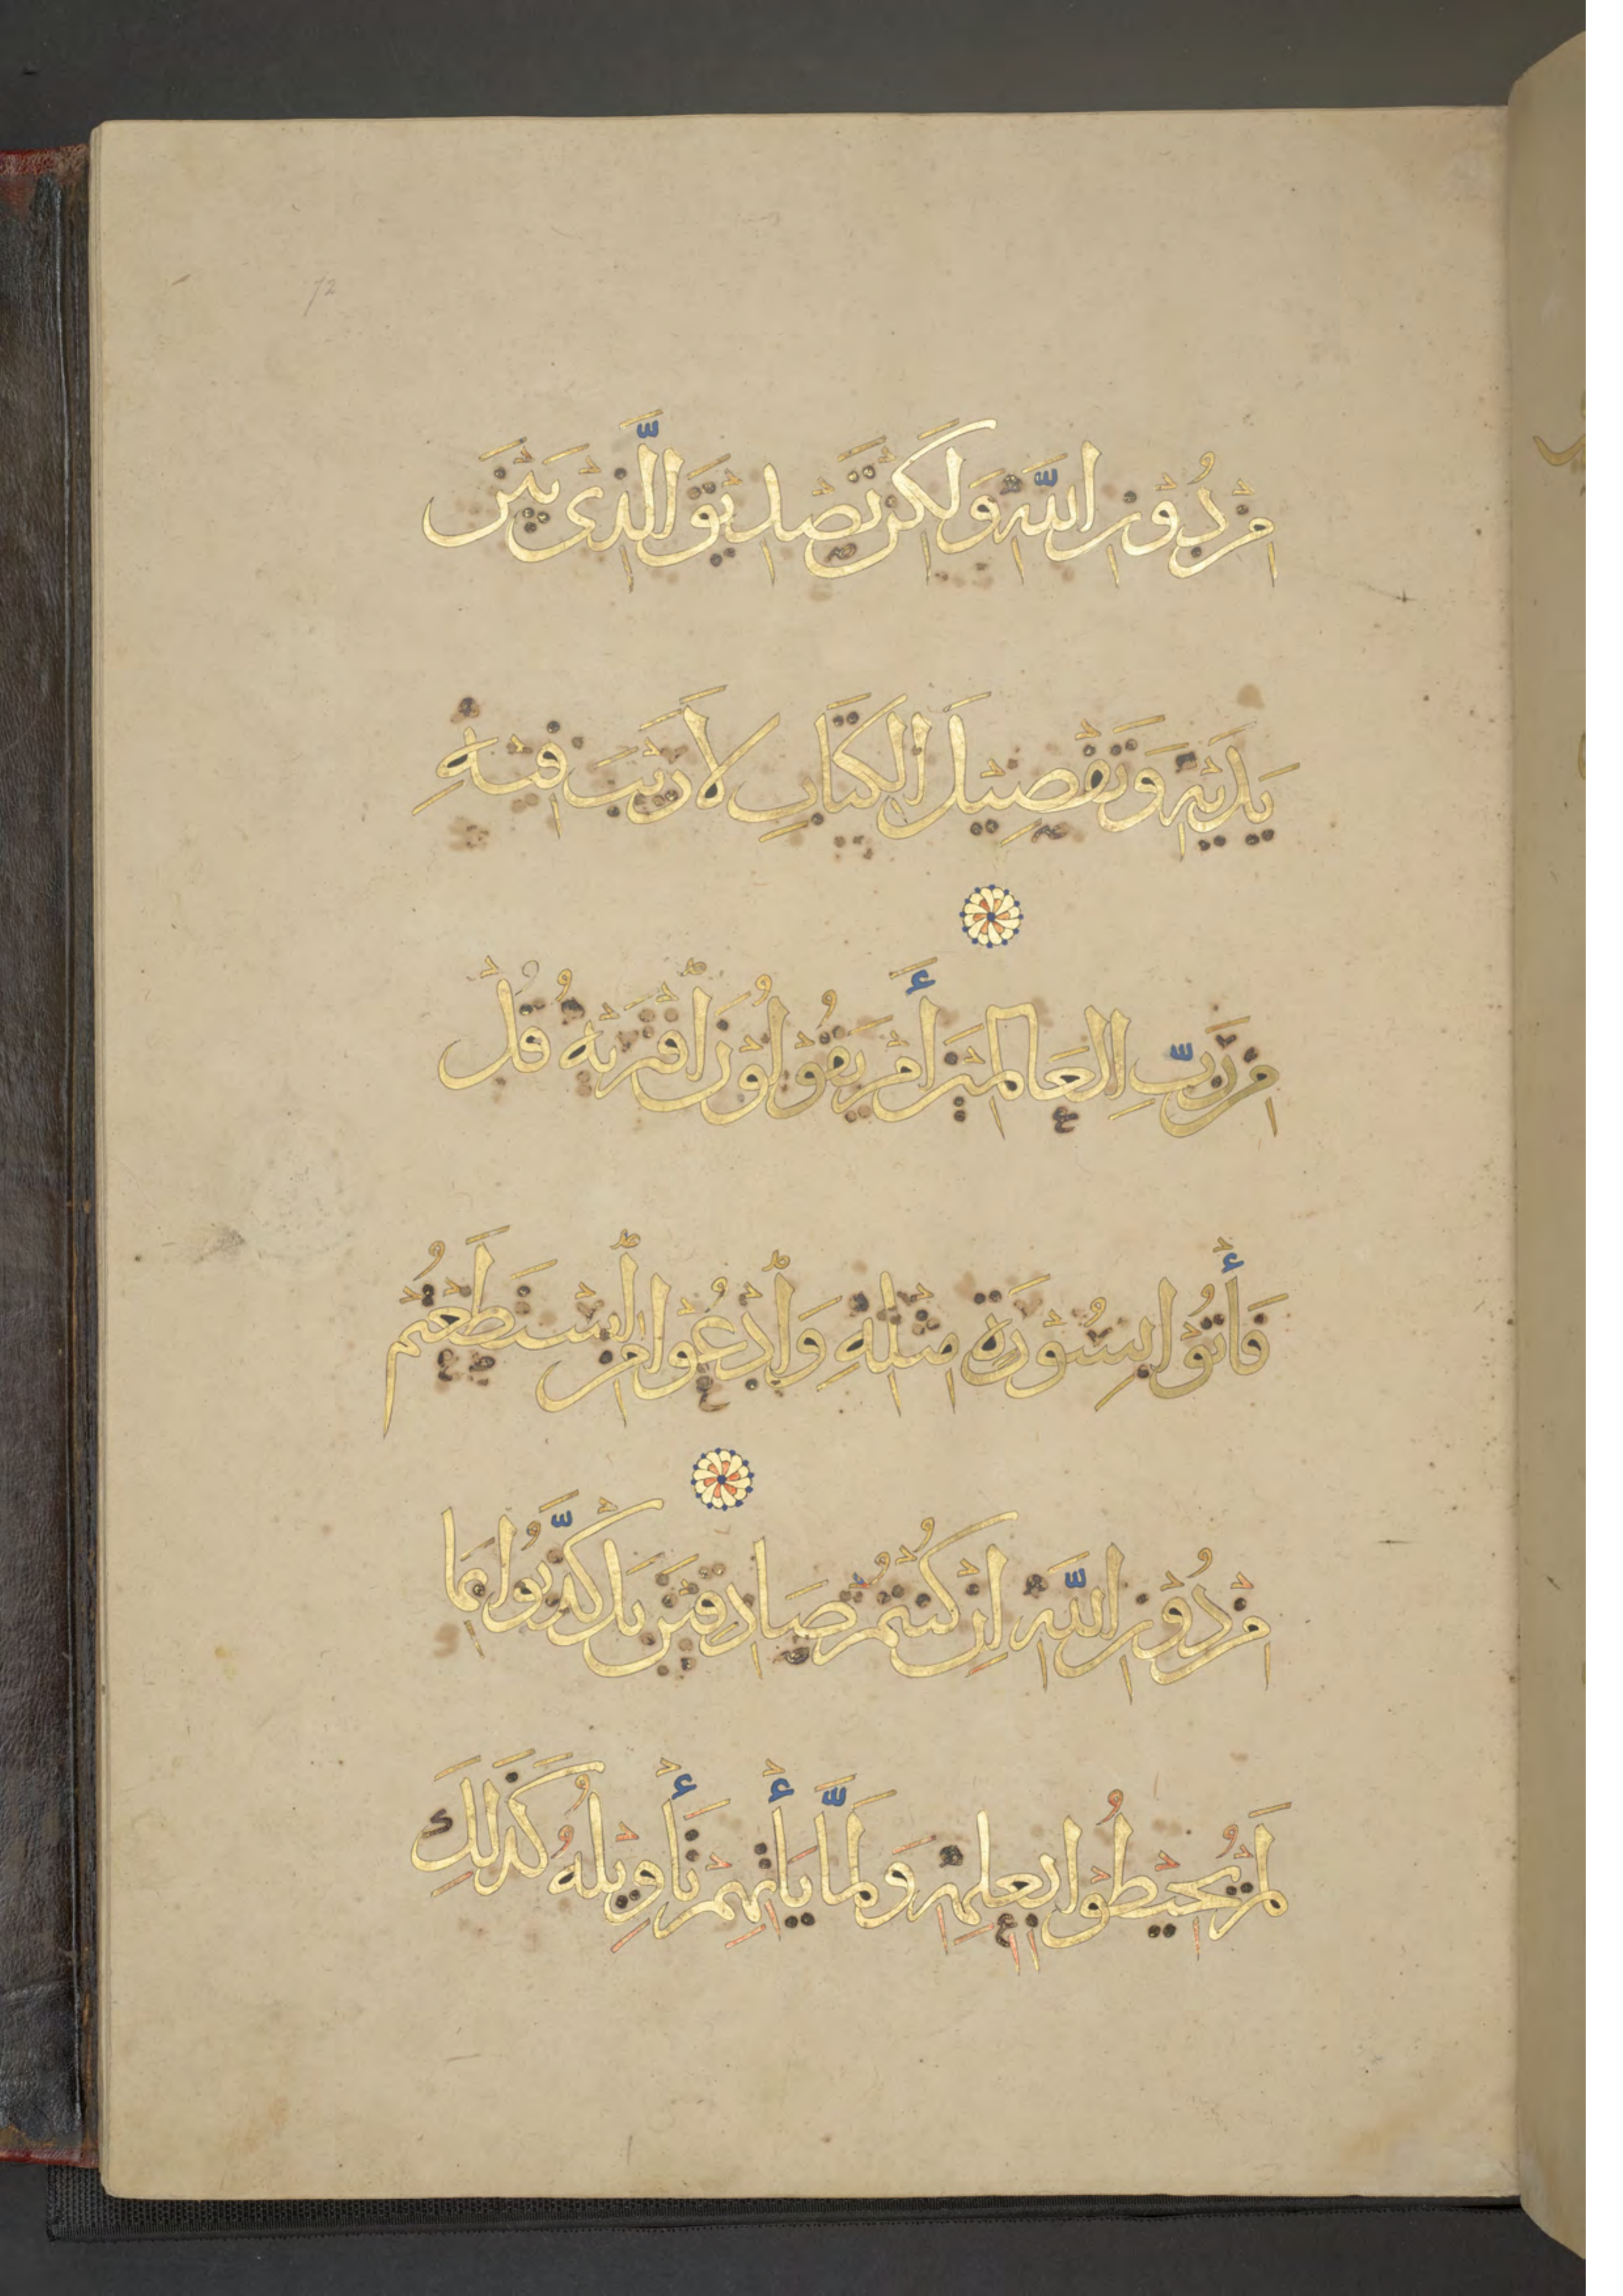 72
مِنْ دُوْنِ اللّٰهِ وَلَكِنْ تَصْدِيْقَ الَّذِىْ بَيْنَ
يَدَيْهِ وَتَفْصِيْلَ الْكِتَابِ لَا رَيْبَ فِيْهِ
مِنْ رَبِّ الْعَالَمِيْنَ أَمْ يَقُوْلُوْنَ افْتَرَيهُ قُلْ
فَأْتُوْا بِسُوْرَةٍ مِثْلِهِ وَادْعُوْا مَنِ اسْتَطَعْتُمْ
مِنْ دُوْنِ اللّٰهِ اِنْ كُنْتُمْ صَادِقِيْنَ بَلْ كَذَّبُوْا بِمَا
لَمْ يُحِيْطُوْا بِعِلْمِهِ وَلَمَّا يَأْتِهِمْ تَأْوِيْلُهُ كَذَلِكَ